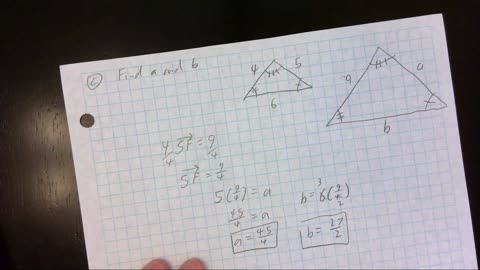 6 Find a and b
4 5
6
9 a
b
4·SF = 9
4 4
SF = 9/4
5(9/4) = a
45/4 = a
a = 45/4
b = 6(9/4)
3 2
b = 27/2